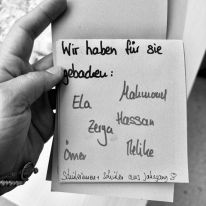 Wir haben für sie
gebacken:
Ela Mahmoud
Zerya Hassan
Ömer Melike
Schülerinnen + Schüler aus Jahrgang 8